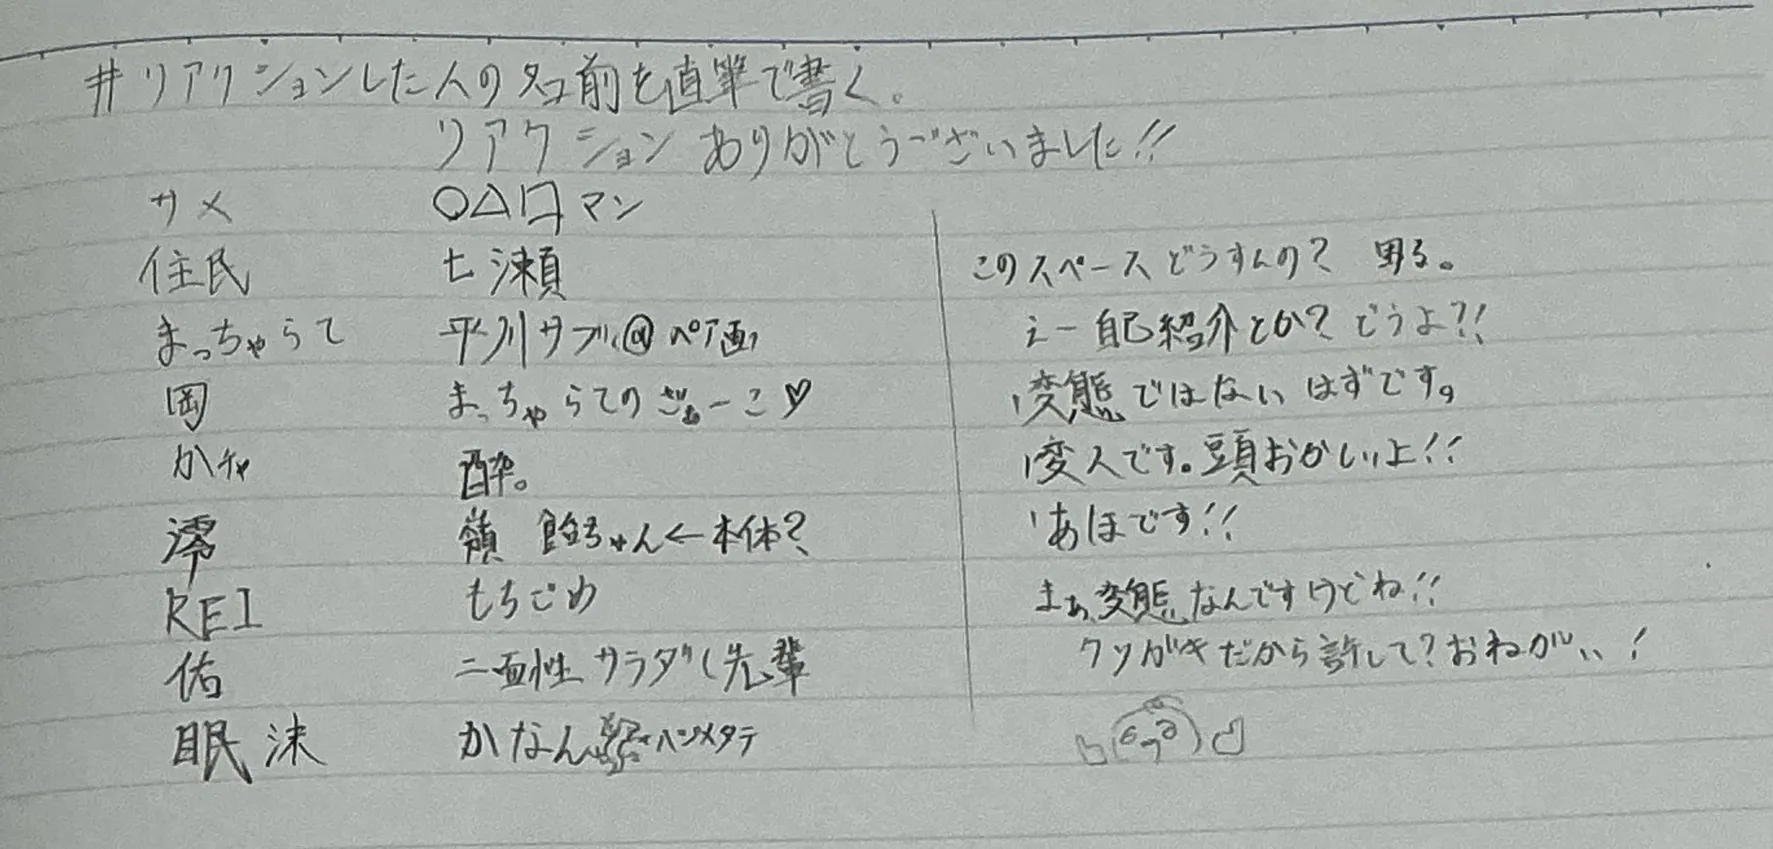 #リアクションした人の名前を直筆で書く。
リアクションありがとうございました!!
サメ
住民
まっちゃらて
岡
かチャ
澪
REI
佑
眠沫
○△口マン
七瀬
平川サブ@ペア画
まっちゃらての
酔。
嶺 飴ちゃん←本体?
もちごめ
二面性サラダ 先輩
かなん ペンメタテ
このスペースどうすんの? 困る。
え一自己紹介とか?どうよ?!
変態ではないはずです。
変人です。頭おかしいよ!!
あほです!!
まぁ変態なんですけどね!!
クソガキだから許して?おねがい!